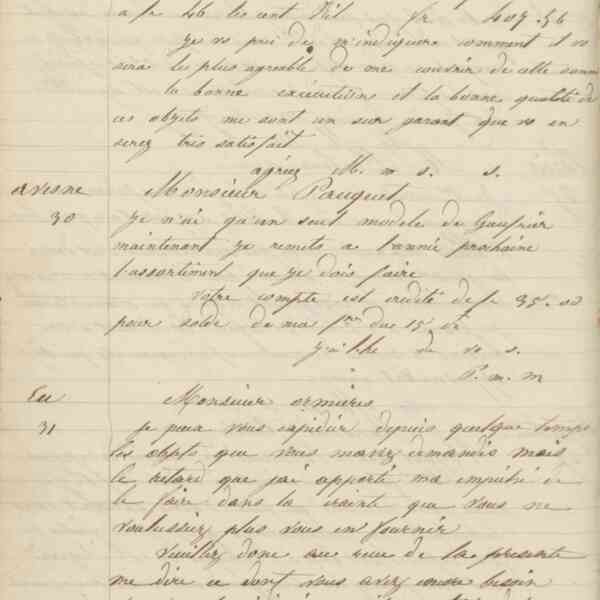 a fr 46 les cent Kil fr 407.56
Je vs prie de m'indiquer comment il vs
sera le plus agreable de me couvrir de cette somme
la bonne exécution et la bonne qualité de
ces objets me sont un sur garant que vs en
serez tres satisfait
agréez M. m s. s.
avesne Monsieur Pauquet
30 Je n'ai qu'un seul modele de Gaufrier
maintenant je remets a l'année prochaine
l'assortiment que je dois faire
Votre compte est crédité de fr 35.00
pour solde de ma fre due 15 ct
J'ai l'he de vs s.
P. m. m
Eu Monsieur ormières
31 je peux vous expédier depuis quelque temps
les objets que vous m'avez demandés mais
le retard que j'ai apporté ma empéché de
le faire dans la crainte que vous ne
voulussiez plus vous en fournir
Veuillez donc au recu de la presente
me dire ce dont vous avez encore besoin